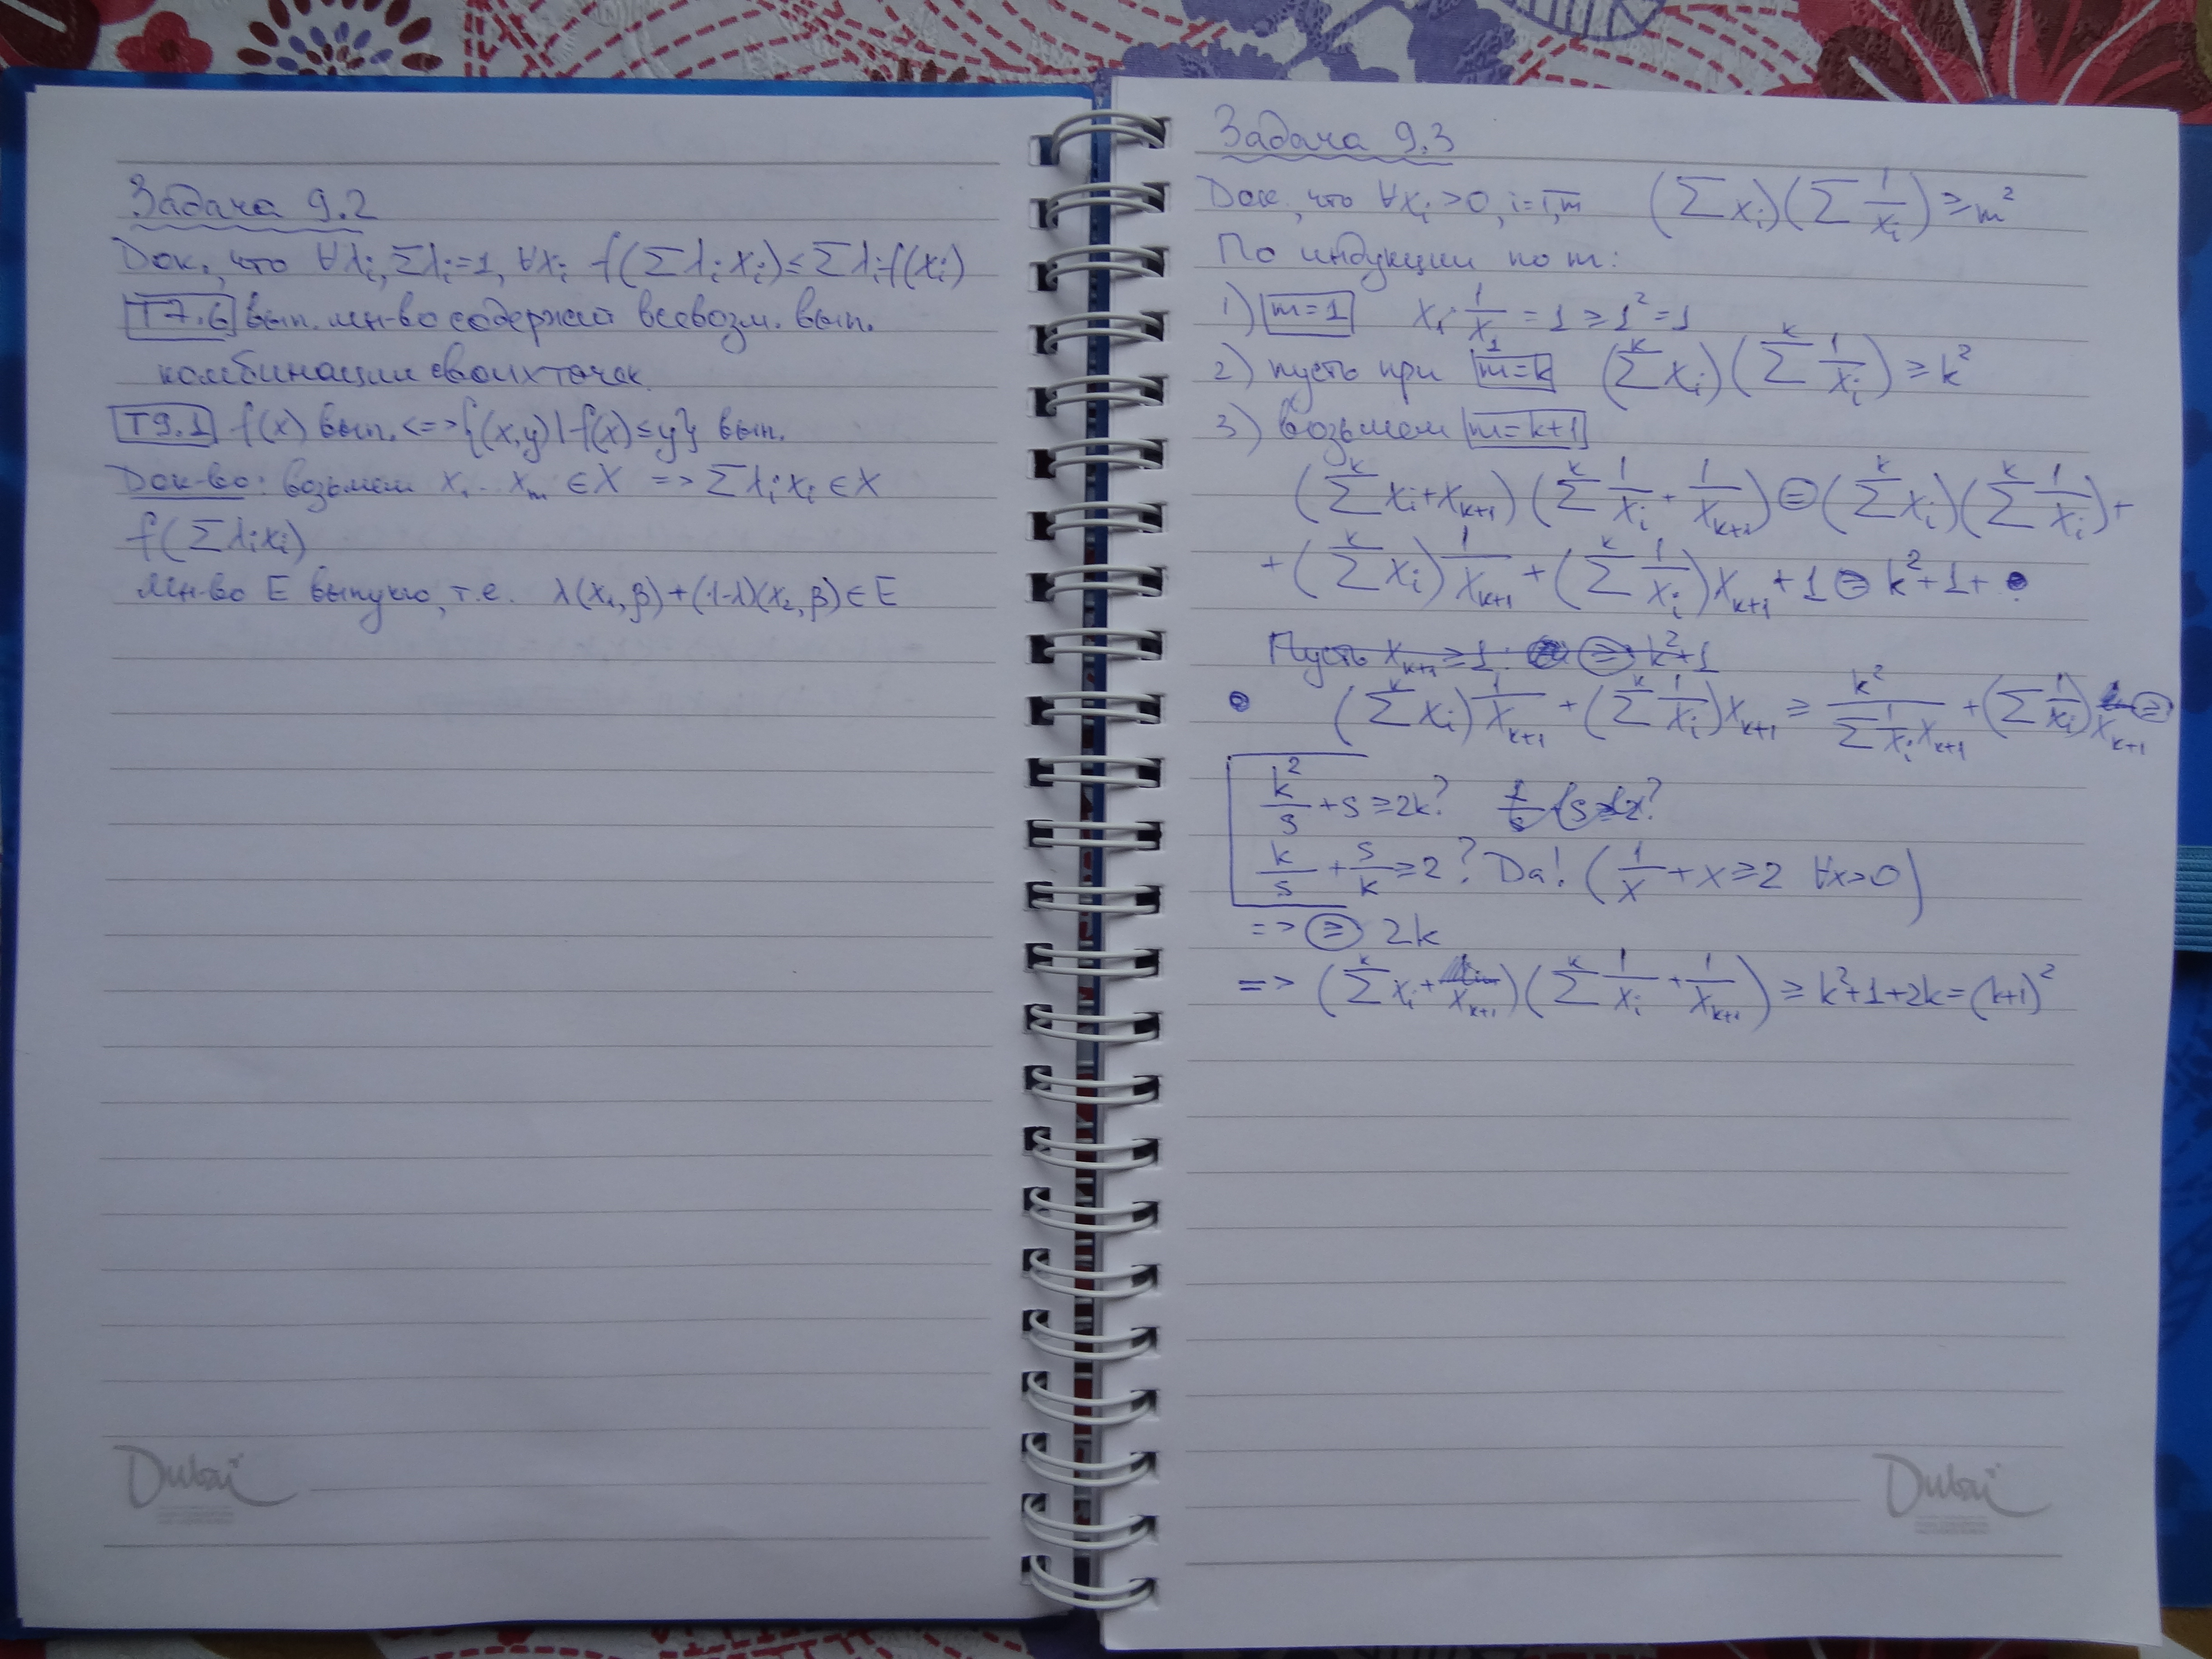 Задача 9.2
Док, что ∀λᵢ, Σλᵢ=1, ∀xᵢ f(Σλᵢxᵢ)≤Σλᵢf(xᵢ)
Т7.6 вып. мн-во содержит всевозм. вып.
комбинации своих точек.
Т9.1 f(x) вып. <=> {(x,y) | f(x)≤y} вып.
Док-во: возьмем x₁.. xₘ ∈X => Σλᵢxᵢ ∈X
f(Σλᵢxᵢ)
Мн-во E выпукло, т.е. λ(x₁,β)+(1-λ)(x₂,β)∈E
Dubai
Задача 9.3
Док, что ∀xᵢ>0, i=1,m (Σxᵢ)(Σ 1/xᵢ)≥m²
По индукции по m:
1) m=1 x₁·1/x₁ = 1 ≥ 1² = 1
2) пусть при m=k (Σᵏ xᵢ)(Σᵏ 1/xᵢ) ≥ k²
3) возьмем m=k+1
(Σᵏ xᵢ+xₖ₊₁)(Σᵏ 1/xᵢ + 1/xₖ₊₁) = (Σᵏ xᵢ)(Σᵏ 1/xᵢ)+
+(Σᵏ xᵢ) 1/xₖ₊₁ + (Σᵏ 1/xᵢ)xₖ₊₁ + 1 ≥ k²+1+ •
Пусть xₖ₊₁ ≥ 1: ≥ k²+1
• (Σᵏ xᵢ) 1/xₖ₊₁ + (Σᵏ 1/xᵢ)xₖ₊₁ ≥ k²/(Σ 1/xᵢ xₖ₊₁) + (Σ 1/xᵢ) xₖ₊₁ ≥
k²/s + s ≥ 2k?
k/s + s/k ≥ 2? Да! (1/x + x ≥ 2 ∀x>0)
=> ≥ 2k
=> (Σᵏ xᵢ + xₖ₊₁)(Σᵏ 1/xᵢ + 1/xₖ₊₁) ≥ k²+1+2k = (k+1)²
Dubai